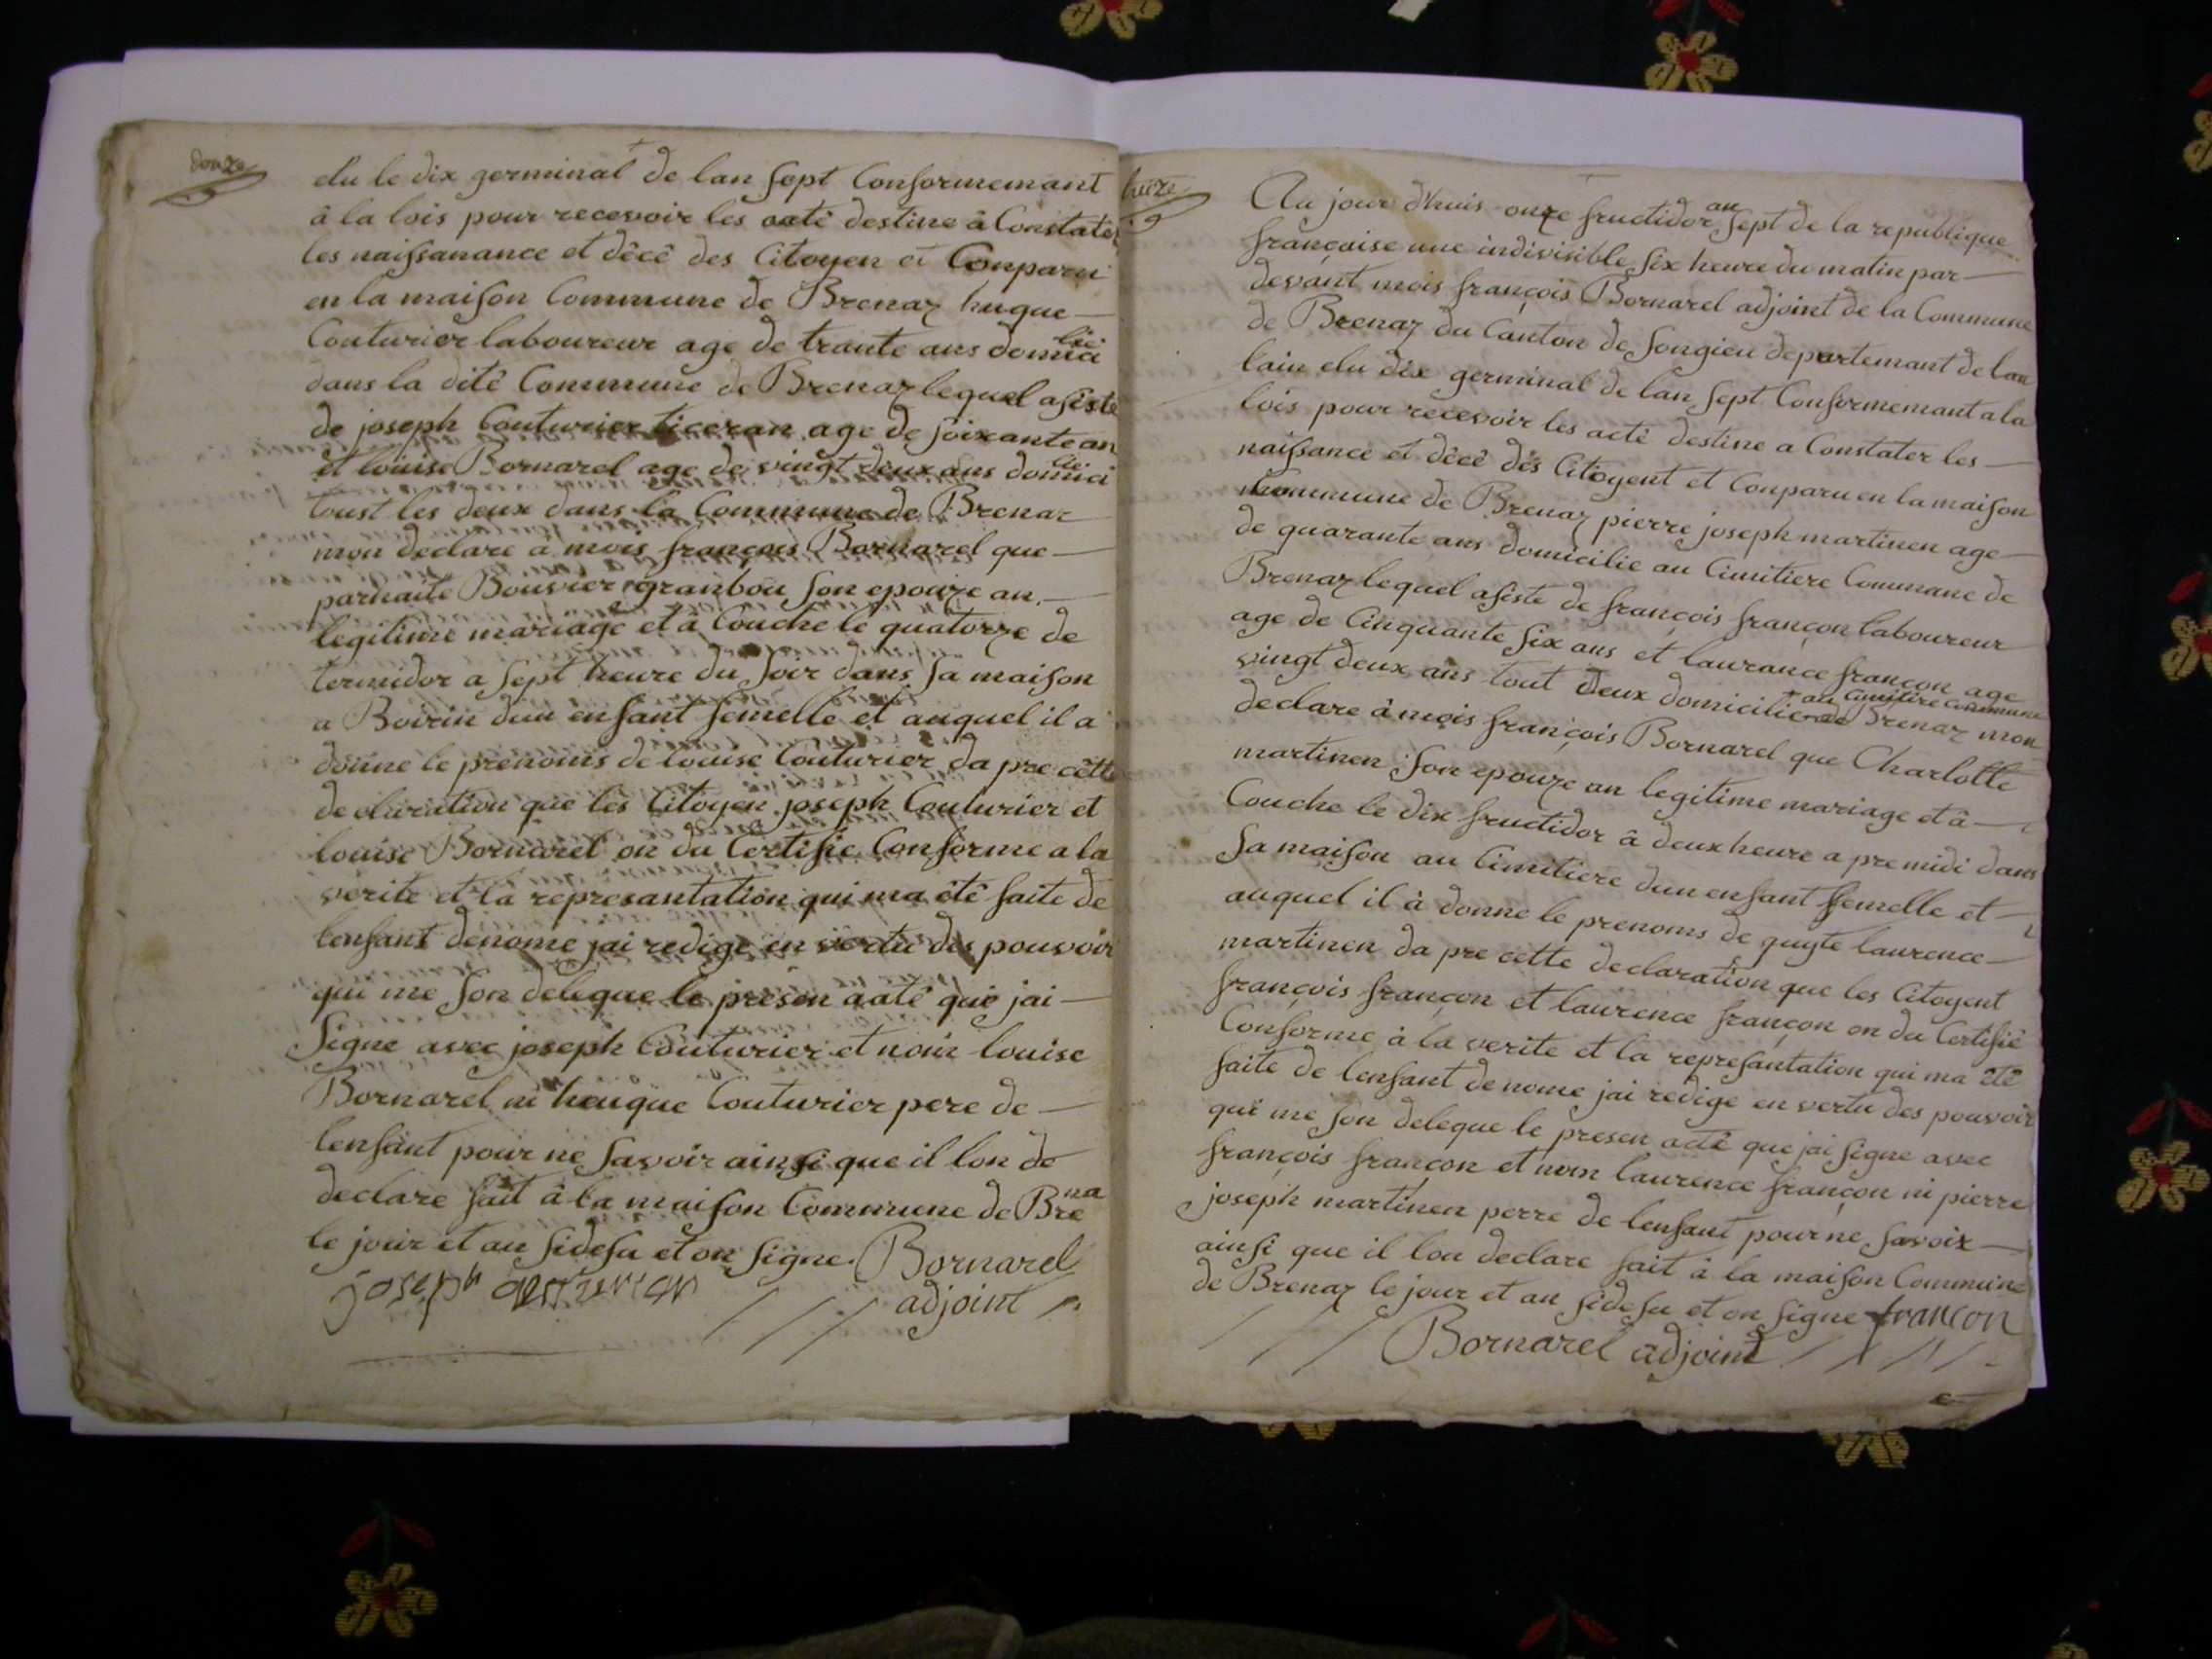 douze
elu le dix germinal de lan sept Conformemant
à la lois pour recevoir les actê destine à Constatêr
les naissanance et dêcê des Citoyen et Conparu
en la maison Commune de Brenaz hugue
Couturier laboureur age de trante ans domicilie
dans la ditê Commune de Brenaz lequel asiste
de joseph Couturier ticeran age de soixante an
et louise Bornarel age de vingt deux ans domicilie
toust les deux dans la Commune de Brenaz
mon declare a mois françois Bornarel que
parnaite Bouvier granbou son epouze an
legitime mariage et à Couche le quatorze de
termidor a sept heure du soir dans sa maison
a Boirin dun enfant femelle et auquel il a
donne le prenoms de louise Couturier da pre cêtte
declaration que les Citoyen joseph Couturier et
louise Bornarel on du Certifie Conforme a la
verite et la represantation qui ma êtê faite de
lenfant denome jai redige en vertu des pouvoir
qui me son deleque le presen actê que jai
Signe avec joseph Couturier et noin louise
Bornarel ni heugue Couturier pere de
lenfant pour ne savoir ainsi que il lon de
declare fait â la maison Commune de Brena
le jour et an sidesu et on signe. Bornarel
joseph couturier adjoint
treze
Au jour dhuis onze fructidor an sept de la republique
françaîse une indivisible six heure du matin par
devant mois françois Bornarel adjoint de la Commune
de Brenaz du Canton de songieu departemant de lan
lain elu dix germinal de lan sept Conformemant a la
lois pour recevoir les actê destine a Constater les
naissance et dêcê des Citoyent et Conparu en la maison
Commune de Brenaz pierre joseph martinen age
de quarante ans domicilie au Cimitiere Commune de
Brenaz lequel asiste de françois françon laboureur
age de Cinquante six ans et laurance françon age
vingt deux ans tout deux domicilie au Cimitiere Commune de Brenaz mon
declare à mois françois Bornarel que Charlotte
martinen son epouze an legitime mariage et â
Couche le dix fructidor â deux heure a pre midi dans
sa maison au Cimitiere dun enfant femelle et
auquel il à donne le prenoms de guyte laurence
martinen da pre cette declaration que les Citoyent
françois françon et laurence françon on du Certifiê
Conforme à la verite et la represantation qui ma êtê
faite de lenfant de nome jai redige en vertu des pouvoir
qui me son deleque le presen actê que jai signe avec
françois françon et noin laurence françon ni pierre
joseph martinen perre de lenfant pour ne savoix
ainsi que il lon declare fait à la maison Commune
de Brenaz le jour et an sidesu et on signe françon
Bornarel adjoint